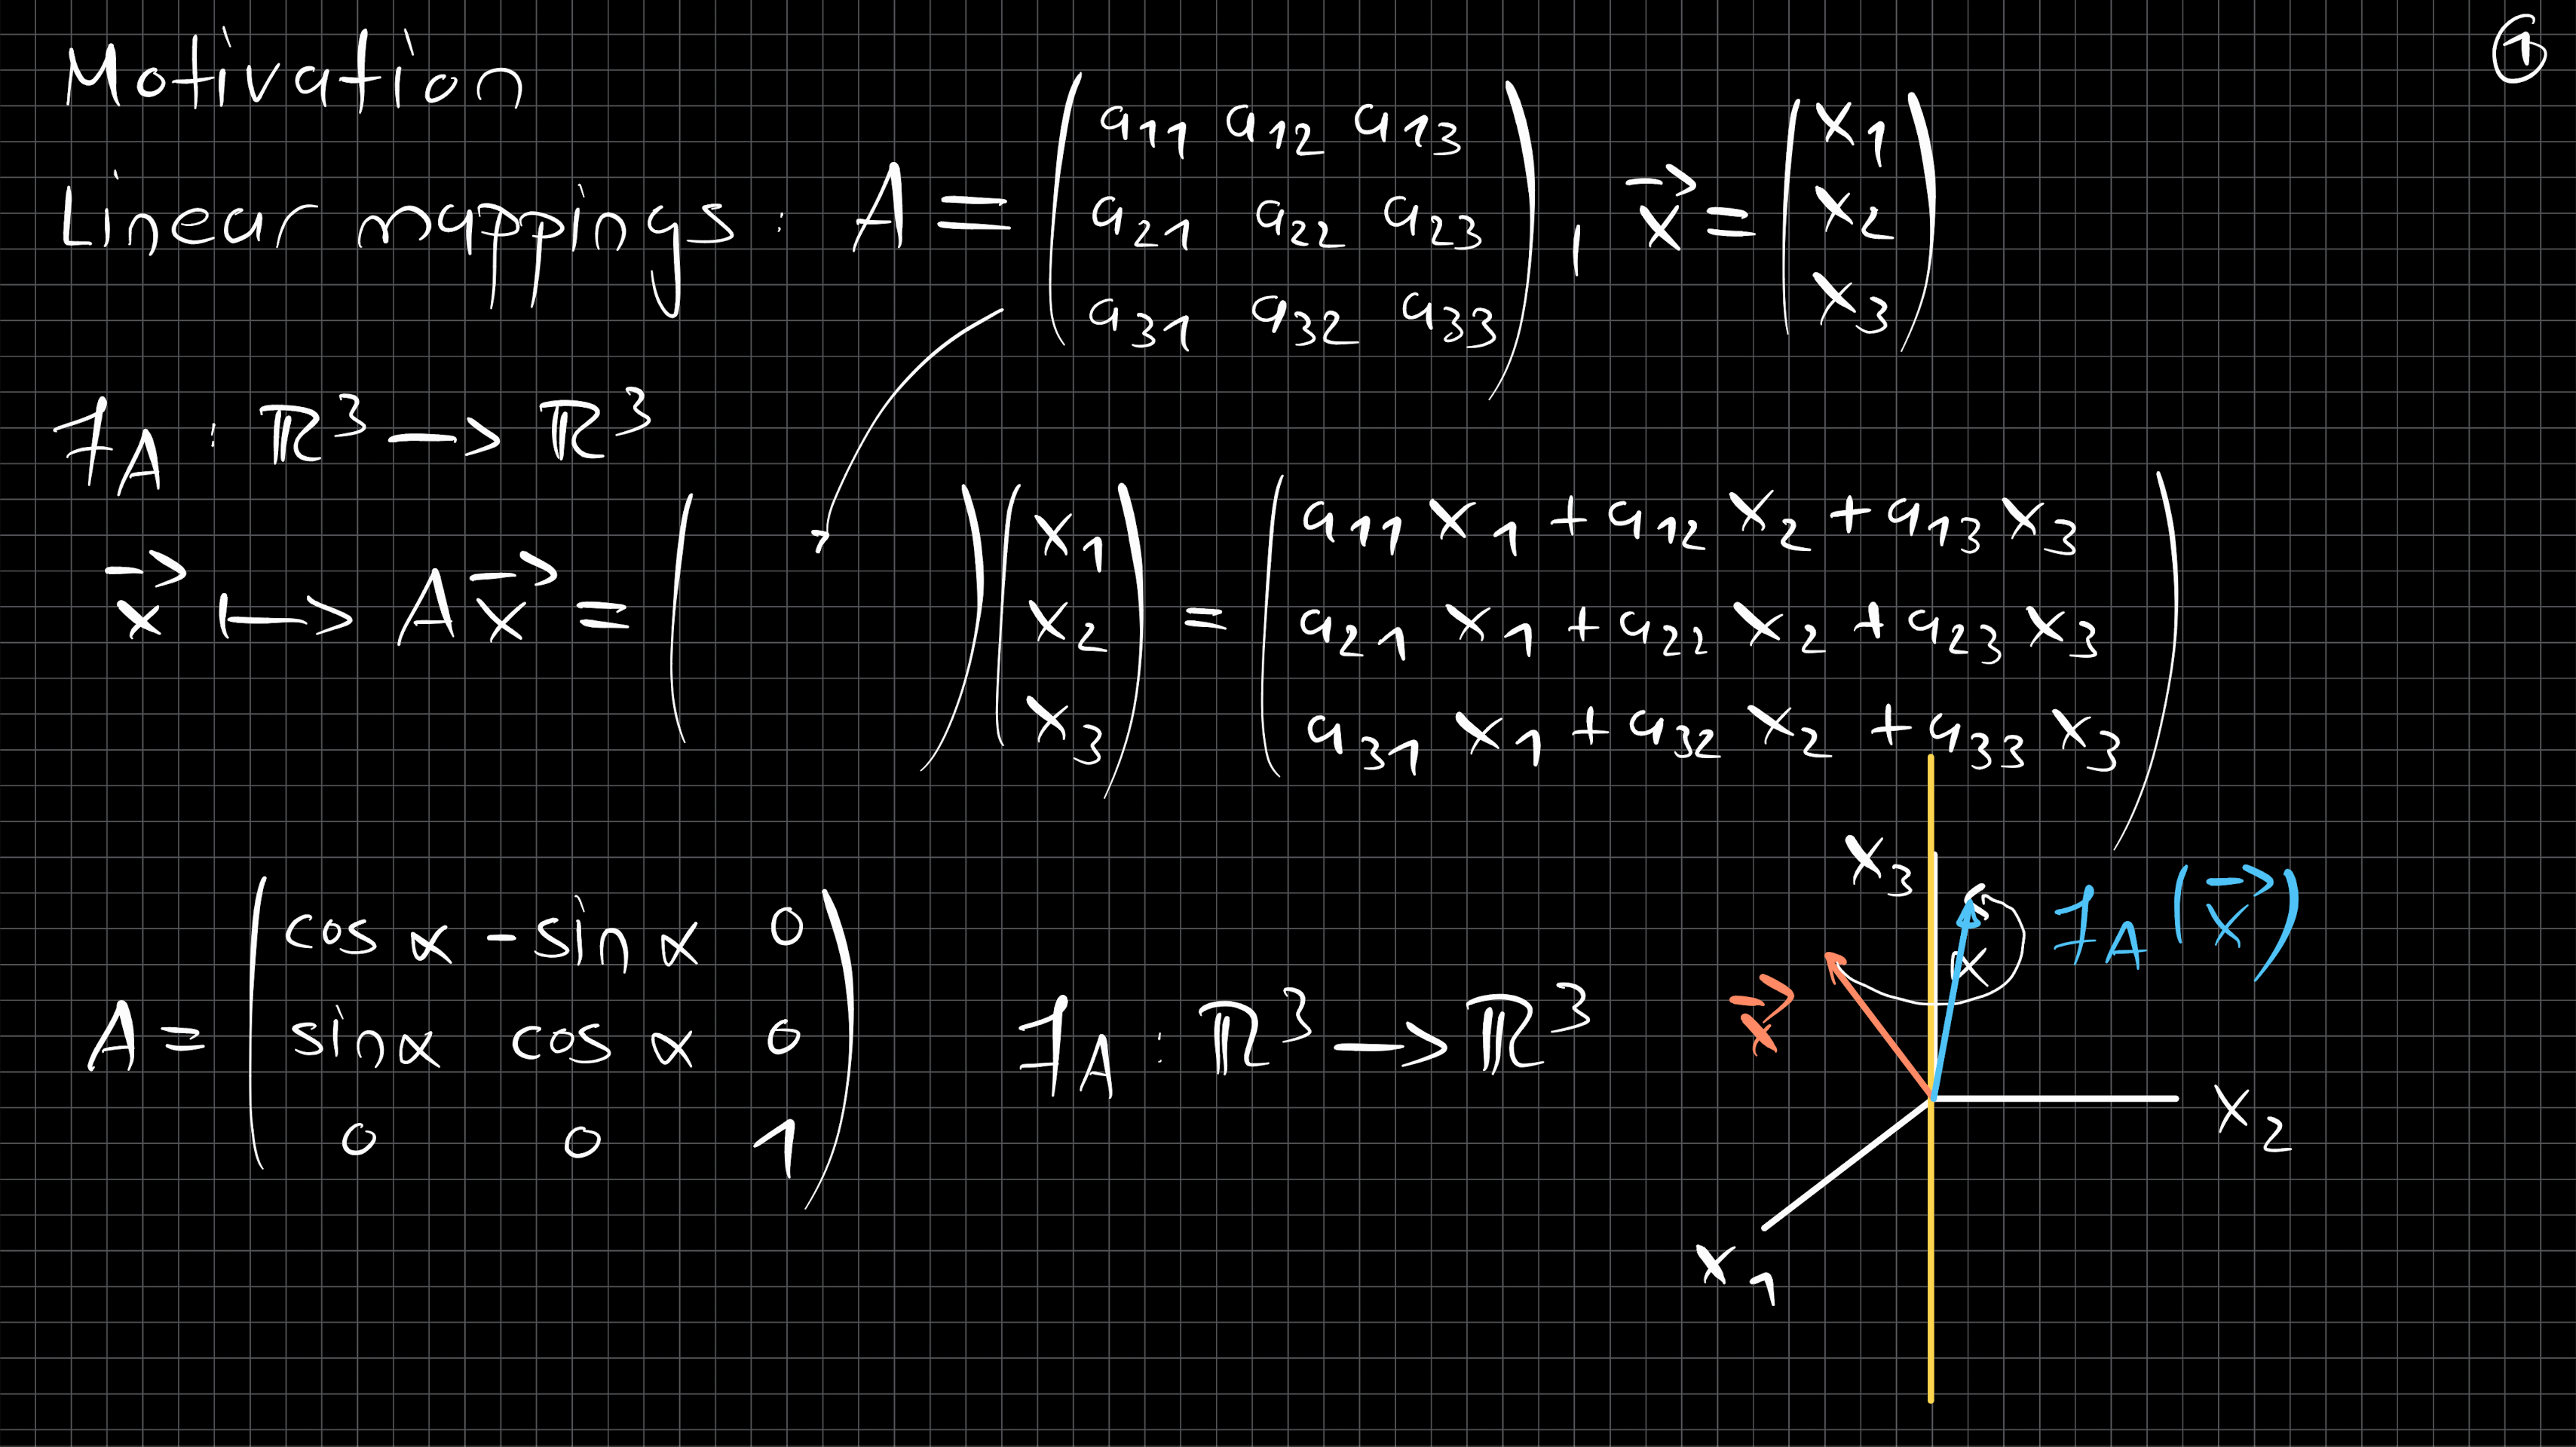 ①
Motivation
Linear mappings: A = ( a₁₁ a₁₂ a₁₃ ; a₂₁ a₂₂ a₂₃ ; a₃₁ a₃₂ a₃₃ ) , x⃗ = ( x₁ ; x₂ ; x₃ )
f_A : ℝ³ → ℝ³
x⃗ ↦ A x⃗ = ( ) ( x₁ ; x₂ ; x₃ ) = ( a₁₁ x₁ + a₁₂ x₂ + a₁₃ x₃ ; a₂₁ x₁ + a₂₂ x₂ + a₂₃ x₃ ; a₃₁ x₁ + a₃₂ x₂ + a₃₃ x₃ )
A = ( cos α -sin α 0 ; sin α cos α 0 ; 0 0 1 ) f_A : ℝ³ → ℝ³
x₃
f_A(x⃗)
α
x⃗
x₂
x₁